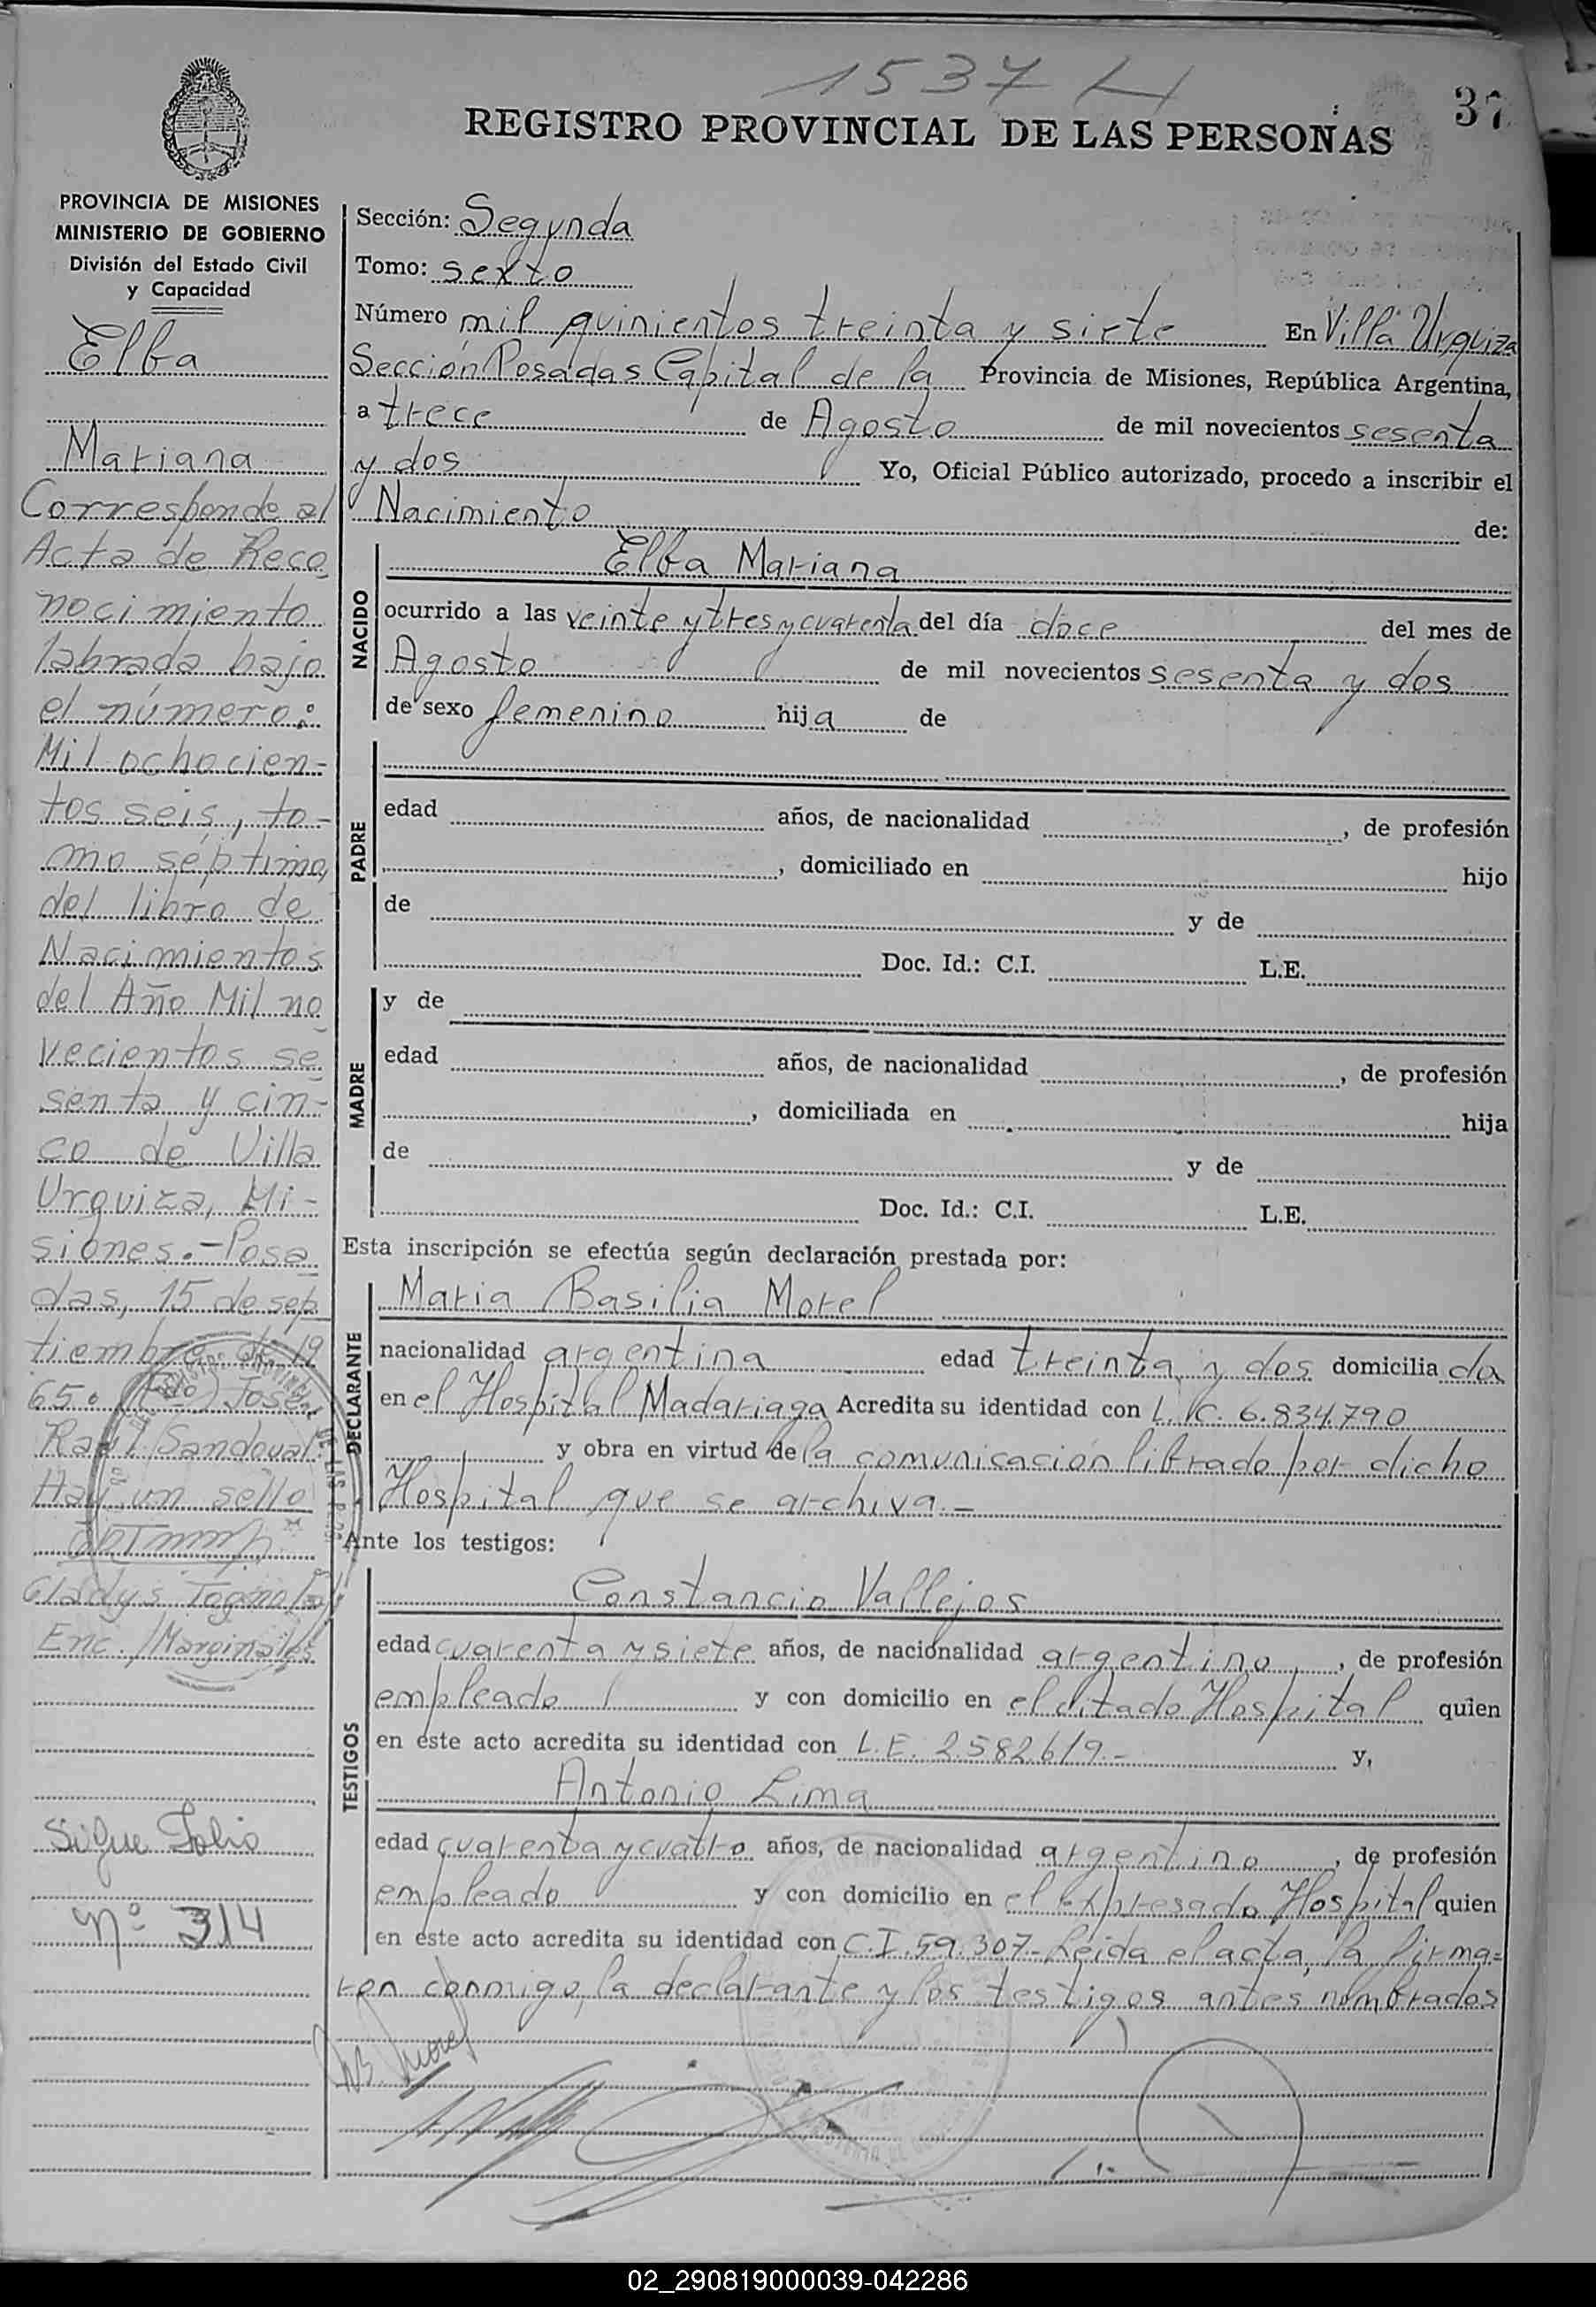 1537 H
37
REGISTRO PROVINCIAL DE LAS PERSONAS
PROVINCIA DE MISIONES
MINISTERIO DE GOBIERNO
División del Estado Civil
y Capacidad
Elba
Mariana
Corresponde al
Acta de Reco
nocimiento
labrada bajo
el número:
Mil ochocien-
tos seis, to-
mo séptimo,
del libro de
Nacimientos
del Año Mil no
vecientos se
senta y cin-
co de Villa
Urquiza, Mi-
siones.- Posa
das, 15 de sep
tiembre de 19
65. (Fdo) José
Raul Sandoval.
Hay un sello
Gladys
Enc. Marginales
Sigue Folio
Nº 314
Sección: Segunda
Tomo: sexto
Número mil quinientos treinta y siete En Villa Urquiza
Sección Posadas Capital de la Provincia de Misiones, República Argentina,
a trece de Agosto de mil novecientos sesenta
y dos Yo, Oficial Público autorizado, procedo a inscribir el
Nacimiento de:
NACIDO
Elba Mariana
ocurrido a las veinte y tres y cuarenta del día doce del mes de
Agosto de mil novecientos sesenta y dos
de sexo femenino hija de
PADRE
edad años, de nacionalidad , de profesión
, domiciliado en hijo
de y de
Doc. Id.: C.I. L.E.
MADRE
y de
edad años, de nacionalidad , de profesión
, domiciliada en hija
de y de
Doc. Id.: C.I. L.E.
Esta inscripción se efectúa según declaración prestada por:
DECLARANTE
Maria Basilia Morel
nacionalidad argentina edad treinta y dos domiciliada
en el Hospital Madariaga Acredita su identidad con L.C. 6.834.790
y obra en virtud de la comunicación librado por dicho
Hospital que se archiva.-
Ante los testigos:
TESTIGOS
Constancio Vallejos
edad cuarenta y siete años, de nacionalidad argentino, de profesión
empleado y con domicilio en el citado Hospital quien
en este acto acredita su identidad con L.E. 2.582.619.- y,
Antonio Lima
edad cuarenta y cuatro años, de nacionalidad argentino, de profesión
empleado y con domicilio en el expresado Hospital quien
en este acto acredita su identidad con C.I. 59.307- Leida el acta, la firma=
ron conmigo, la declarante y los testigos antes nombrados
MB. Morel
02_290819000039-042286